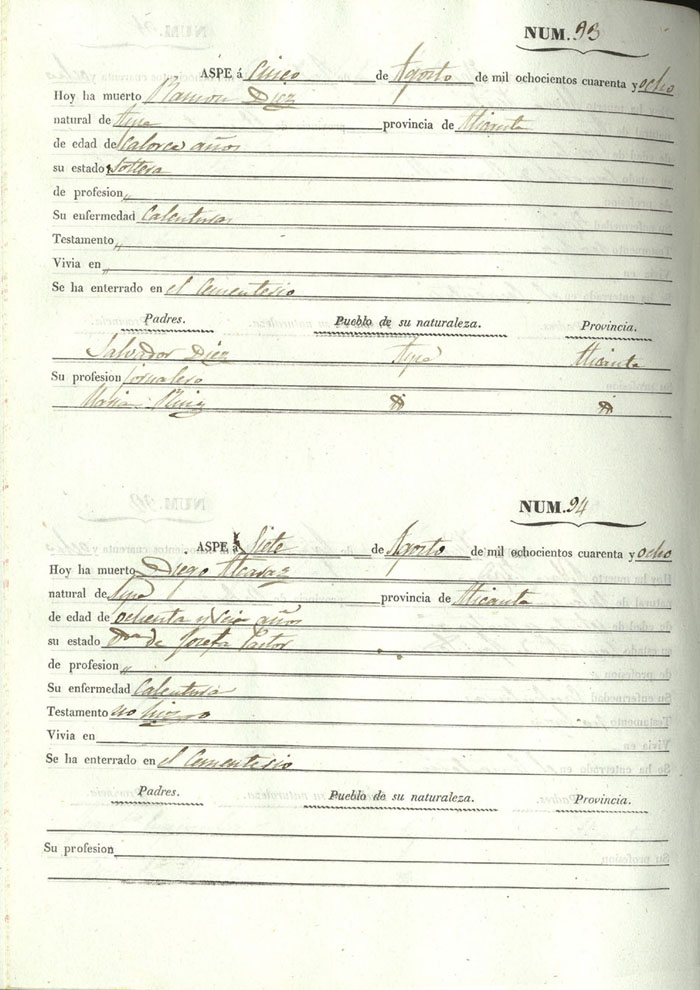 NUM. 93
ASPE á Cinco de Agosto de mil ochocientos cuarenta y ocho
Hoy ha muerto Ramon Diez
natural de Aspe provincia de Alicante
de edad de Catorce años
su estado Soltero
de profesion „
Su enfermedad Calentura
Testamento „
Vivia en „
Se ha enterrado en el Cementerio
Padres. Pueblo de su naturaleza. Provincia.
Salvador Diez Aspe Alicante
Su profesion Jornalero
Maria Ruiz
NUM. 94
ASPE á Siete de Agosto de mil ochocientos cuarenta y ocho
Hoy ha muerto Diego Alcaraz
natural de Aspe provincia de Alicante
de edad de ochenta y seis años
su estado de Josefa Pastor
de profesion „
Su enfermedad Calentura
Testamento no hizo
Vivia en
Se ha enterrado en el Cementerio
Padres. Pueblo de su naturaleza. Provincia.
Su profesion